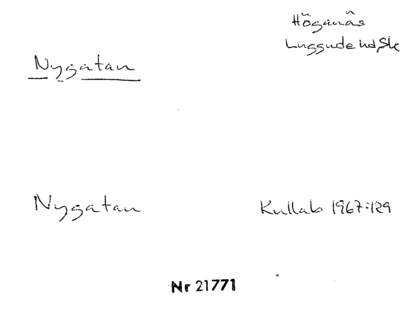 Höganäs
Luggude hd, Sk
Nygatan
Nygatan Kullab 1967:129
Nr 21771